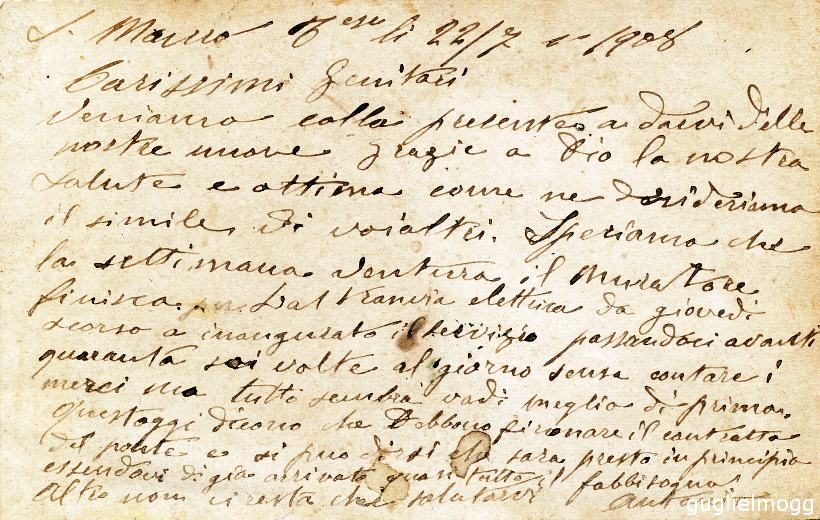 S. Mauro T.ese li 22/7 1908
Carissimi Genitori
Veniamo colla presente a darvi delle
nostre nuove grazie a Dio la nostra
salute e ottima come ne desideriamo
il simile di voialtri. Speriamo che
la settimana ventura il Muratore
finisca. La tranvia elettrica da giovedi
scorso a inaugurato il servizio passandoci avanti
quaranta sei volte al giorno sensa contare i
merci ma tutto sembra vadi meglio di prima.
Quest'oggi dicono che debbono firmare il contratto
del ponte e si può dirsi che sara presto in principio
essendovi di gia arrivato quasi tutto il fabbisogno
Altro non ci resta che salutarvi Antonio
guglielmogg